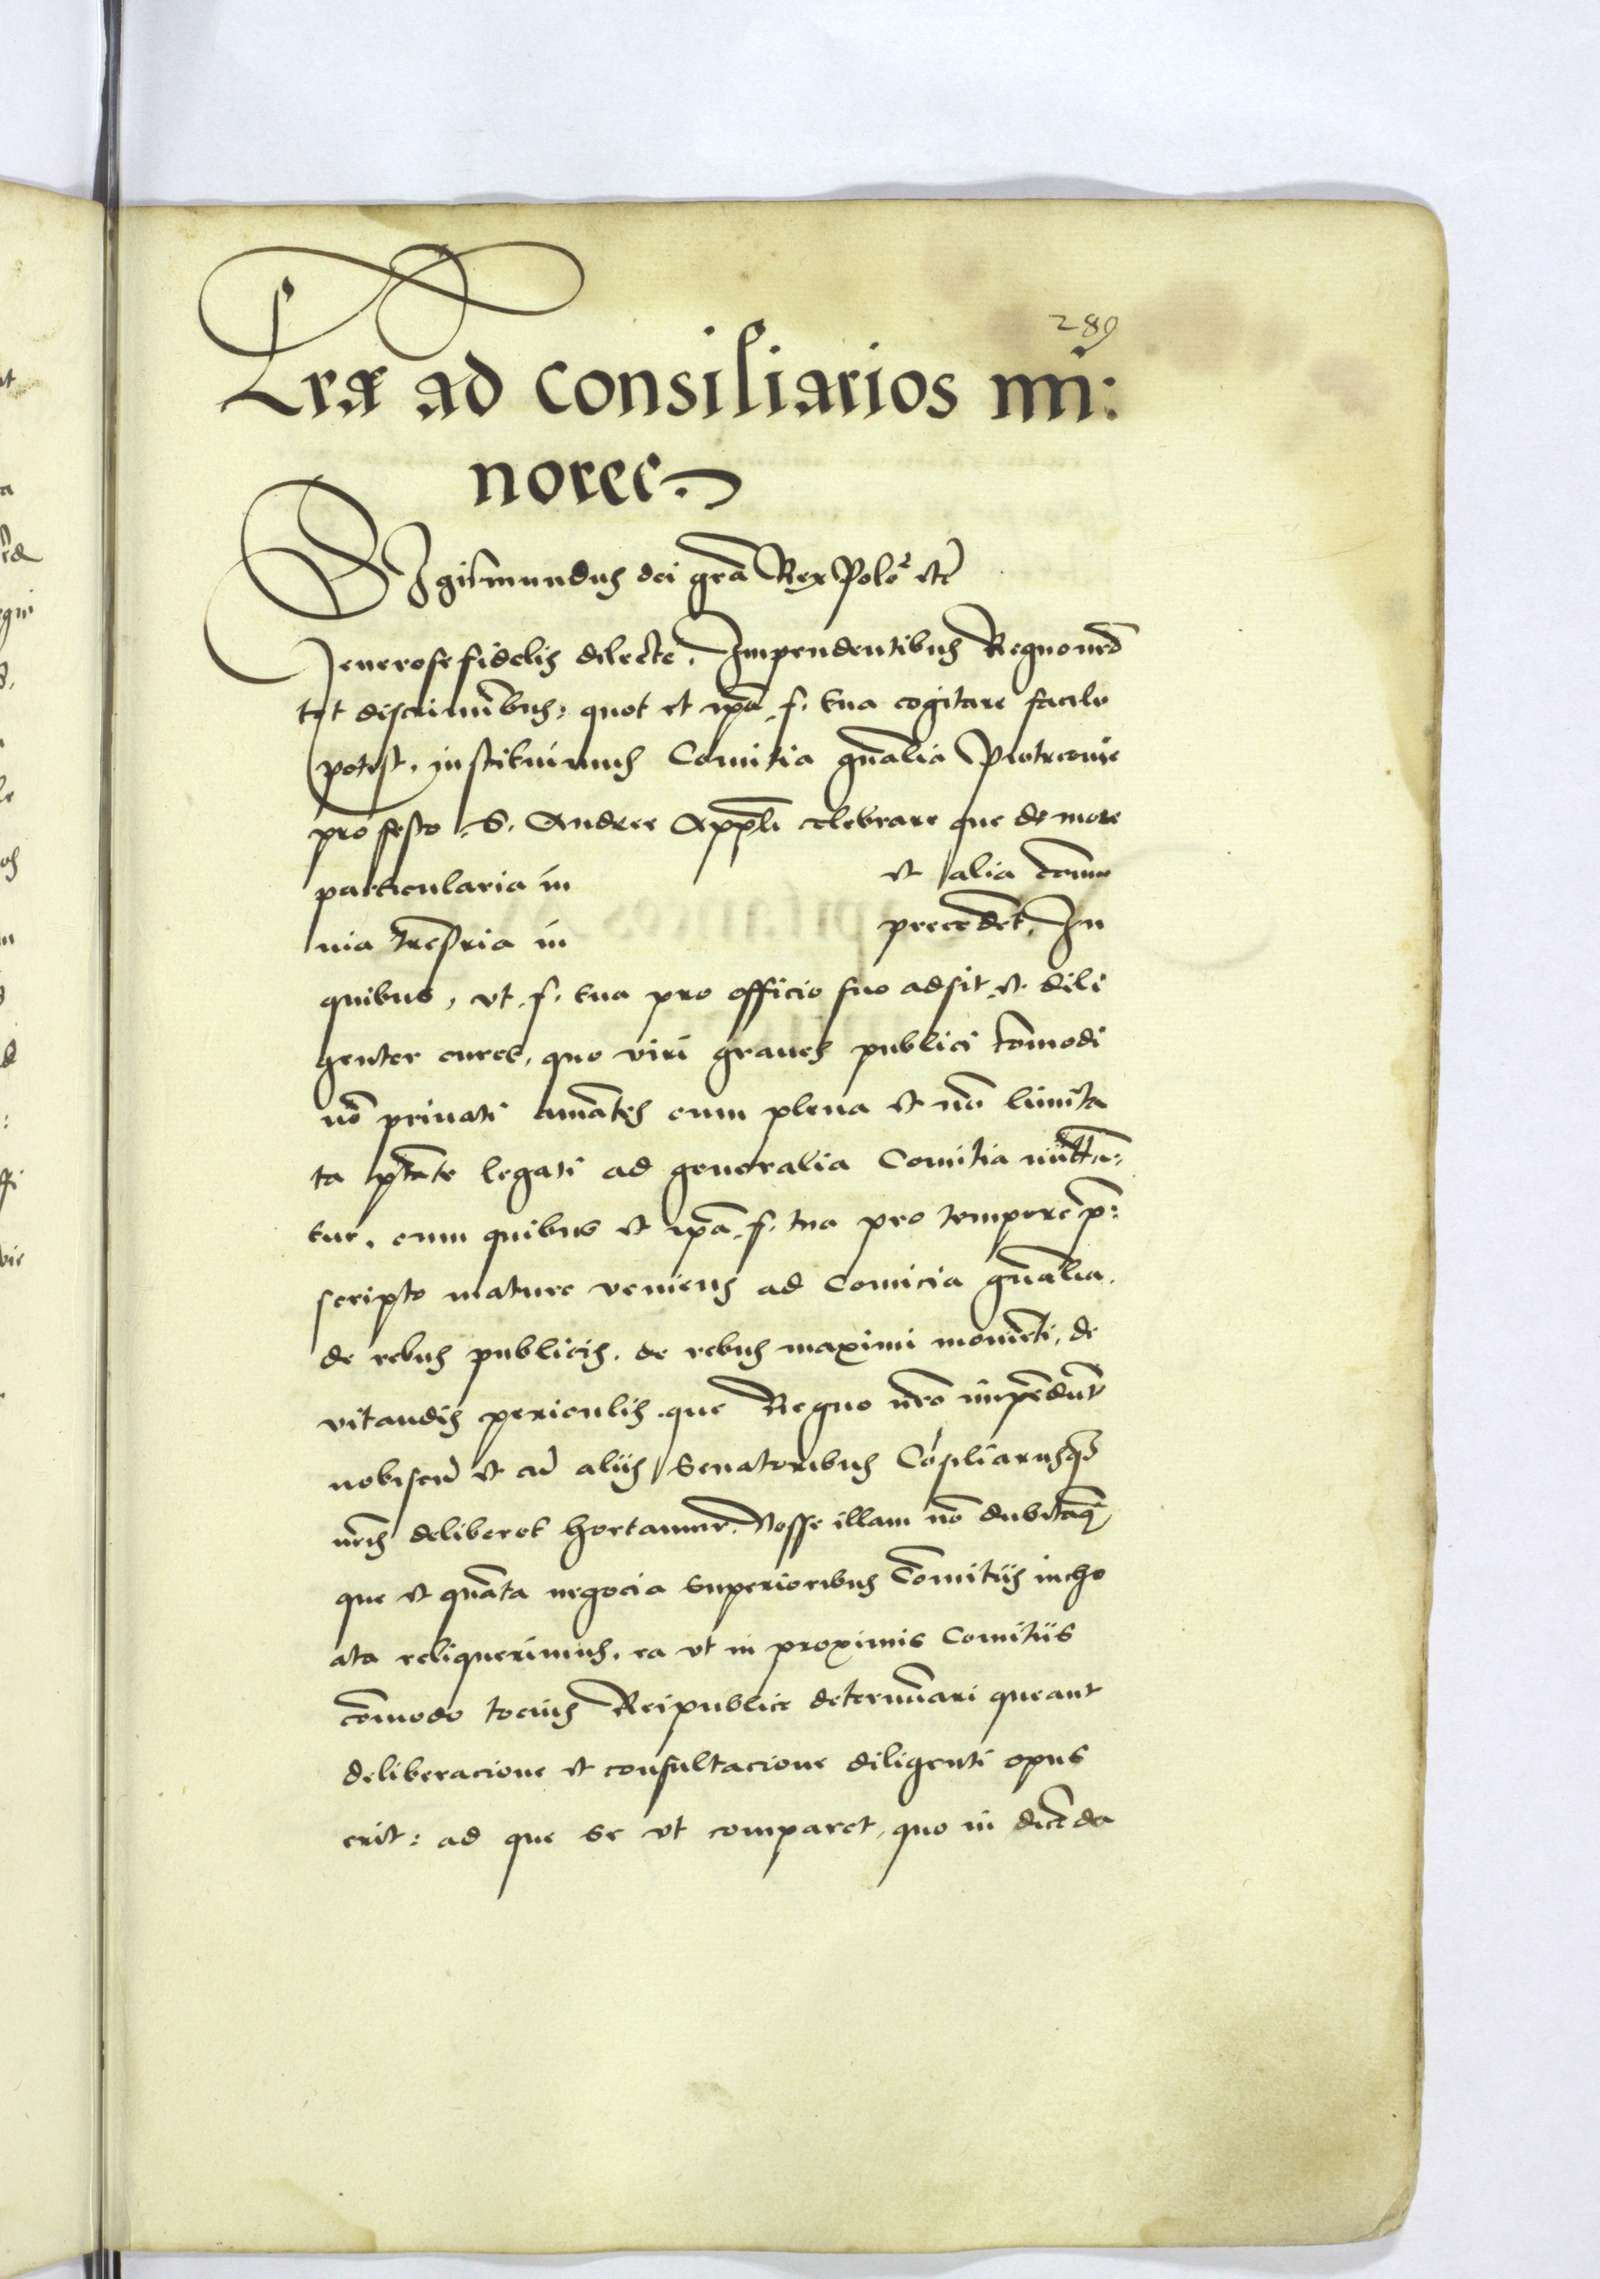 289
Lræ ad consiliarios mi:
nores.
Sigismundus dei gra Rex Polo etc
Generose fidelis dilecte. Impendentibus Regno nro
tot discriminibus: quot et ipa f. tua cogitare facile
potest, instituimus Comitia gnalia Piotrcovie
pro festo S. Andree Appli celebrare que de more
particularia in et alia commu
nia trestria in precedet. In
quibus, vt f. tua pro officio suo adsit et dili
genter curet, quo viri graues publici comodi
no priuati amates cum plena et no limita
ta ptate legati ad generalia Comitia mittan:
tur, cum quibus et ipa f. tua pro tempore p:
scripto mature veniens ad Comicia gnalia.
de rebus publicis, de rebus maximi mometi, de
vitandis periculis que Regno nro impedut
nobiscu et cu aliis Senatoribus Cosiliariisq
nris deliberet hortamur. Nosse illam no dubitamq
que et quata negocia superioribus Comitiis incho
ata reliquerimus, ea vt in proximis Comitiis
comodo tocius Reipublice determinari queant
deliberacione et consultacione diligenti opus
erit: ad que se vt comparet, quo in diceda